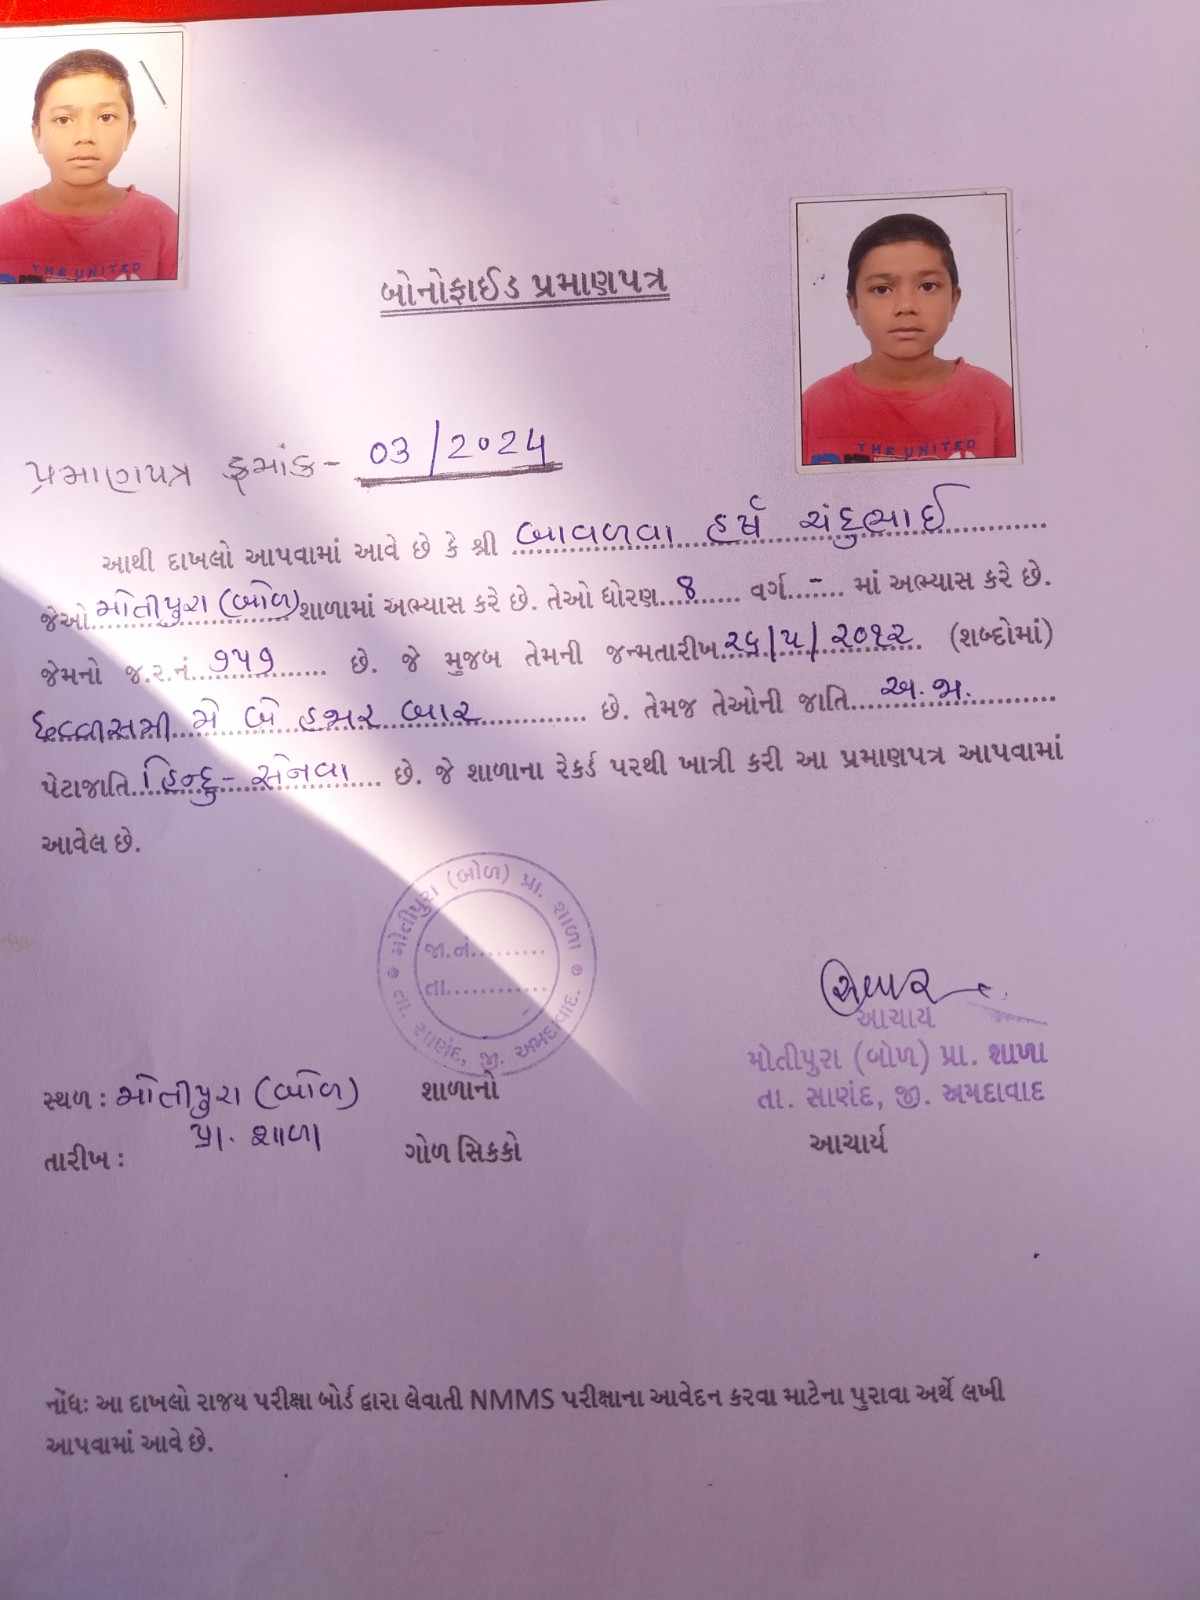 THE UNITED
બોનોફાઈડ પ્રમાણપત્ર
THE UNITED
પ્રમાણપત્ર ક્રમાંક- 03/2024
આથી દાખલો આપવામાં આવે છે કે શ્રી બાવળવા હર્ષ ચંદુભાઈ
જેઓ મોતીપુરા (બોળ) શાળામાં અભ્યાસ કરે છે. તેઓ ધોરણ 8 વર્ગ - માં અભ્યાસ કરે છે.
જેમનો જ.ર.નં. ૧૫૧ છે. જે મુજબ તેમની જન્મતારીખ ૨૬/૫/૨૦૧૨ (શબ્દોમાં)
છવ્વીસમી મે બે હજાર બાર છે. તેમજ તેઓની જાતિ અ.જા.
પેટાજાતિ હિન્દુ - સેનવા છે. જે શાળાના રેકર્ડ પરથી ખાત્રી કરી આ પ્રમાણપત્ર આપવામાં
આવેલ છે.
મોતીપુરા (બોળ) પ્રા. શાળા
જા.નં.
તા.
તા. સાણંદ, જી. અમદાવાદ.
આચાર્ય
મોતીપુરા (બોળ) પ્રા. શાળા
તા. સાણંદ, જી. અમદાવાદ
સ્થળ : મોતીપુરા (બોળ) શાળાનો
પ્રા. શાળા
તારીખ : ગોળ સિક્કો આચાર્ય
નોંધઃ આ દાખલો રાજય પરીક્ષા બોર્ડ દ્વારા લેવાતી NMMS પરીક્ષાના આવેદન કરવા માટેના પુરાવા અર્થે લખી
આપવામાં આવે છે.